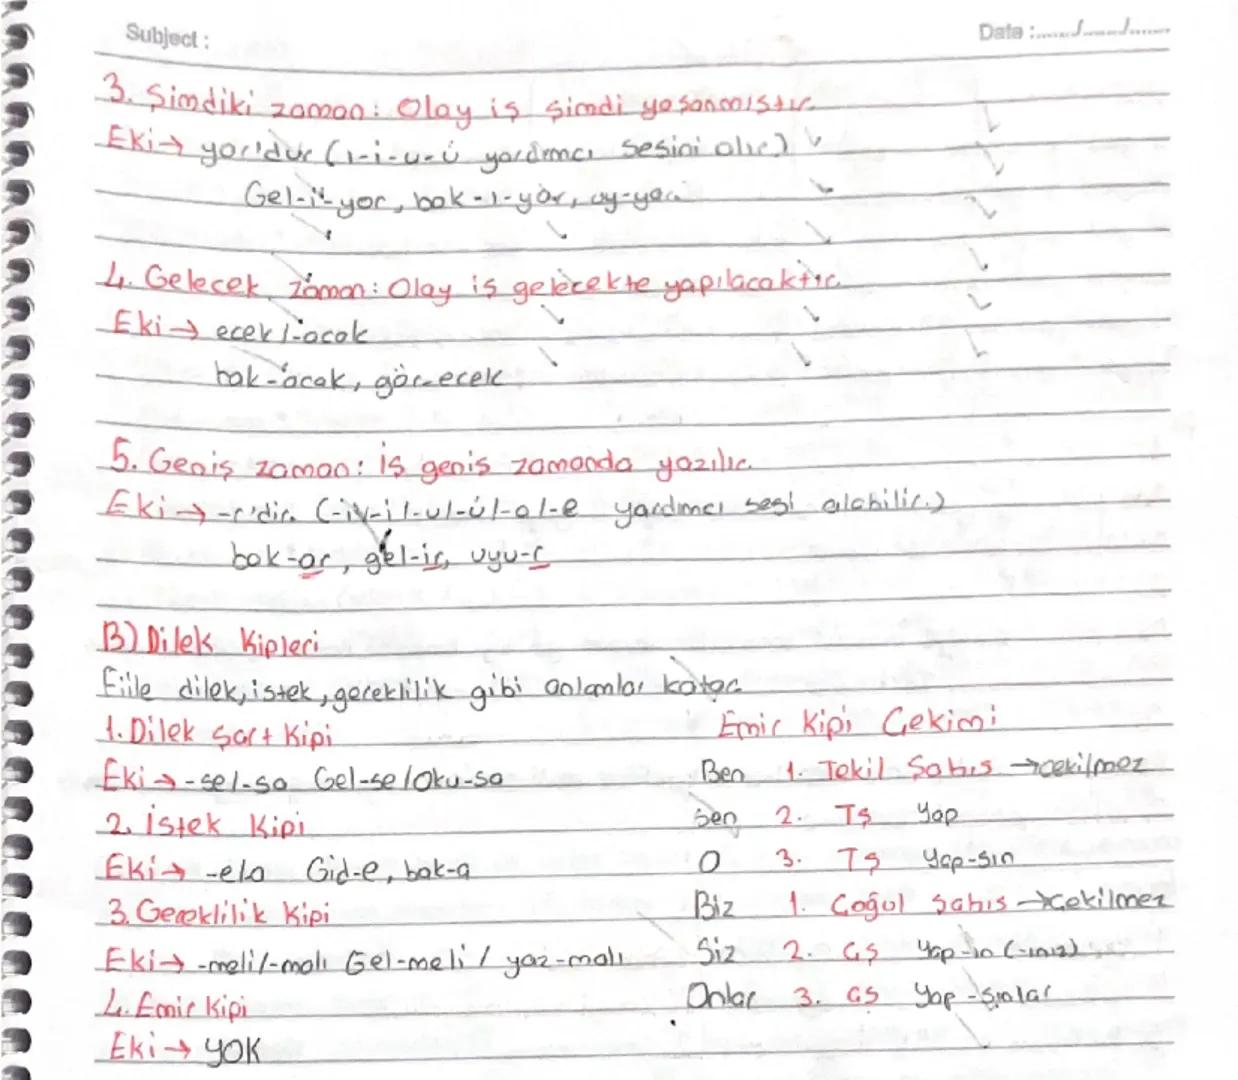 Subject :
Date :....../....../......
3. Şimdiki zaman: Olay iş şimdi yaşanmıştır.
Eki→ yor'dur (ı-i-u-ü yardımcı sesini alır.)
Gel-i-yor, bak-ı-yor, uy-yor
4. Gelecek zaman: Olay iş gelecekte yapılacaktır.
Eki→ ecek/-acak
bak-acak, gör-ecek
5. Geniş zaman: İş geniş zamanda yazılır.
Eki→ -r'dir. (-ı/-i/-u/-ü/-a/-e yardımcı sesi alabilir.)
bak-ar, gel-ir, uyu-r
B) Dilek Kipleri
Fiile dilek, istek, gereklilik gibi anlamlar katar
1. Dilek Şart Kipi
Eki→ -se/-sa Gel-se/Oku-sa
2. İstek Kipi
Eki→ -e/a Gid-e, bak-a
3. Gereklilik Kipi
Eki→ -meli/-malı Gel-meli / yaz-malı
4. Emir Kipi
Eki→ YOK
Emir Kipi Çekimi
Ben 1. Tekil Şahıs →çekilmez
Sen 2. TŞ Yap
O 3. TŞ Yap-sın
Biz 1. Çoğul şahıs →çekilmez
Siz 2. ÇŞ Yap-ın (-ınız)
Onlar 3. ÇŞ Yap-sınlar